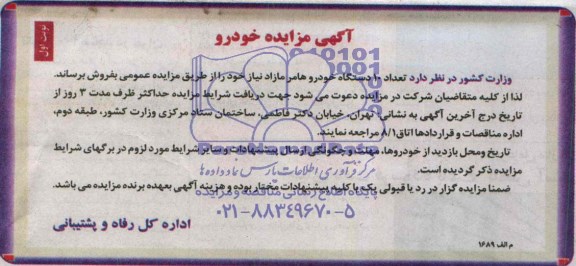 آگهی مزایده خودرو
نوبت اول
وزارت کشور در نظر دارد تعداد ۱۰ دستگاه خودرو هامر مازاد نیاز خود را از طریق مزایده عمومی بفروش برساند.
لذا از کلیه متقاضیان شرکت در مزایده دعوت می شود جهت دریافت شرایط مزایده حداکثر ظرف مدت ۳ روز از
تاریخ درج آخرین آگهی به نشانی: تهران، خیابان دکتر فاطمی، ساختمان ستاد مرکزی وزارت کشور، طبقه دوم،
اداره مناقصات و قراردادها اتاق ۸/۱ مراجعه نمایند.
تاریخ ومحل بازدید از خودروها، مهلت و چگونگی ارسال پیشنهادات و سایر شرایط مورد لزوم در برگهای شرایط
مزایده ذکر گردیده است.
ضمنا مزایده گزار در رد یا قبولی یک یا کلیه پیشنهادات مختار بوده و هزینه آگهی بعهده برنده مزایده می باشد.
اداره کل رفاه و پشتیبانی
م الف ۱۶۸۹
مرکز فرآوری اطلاعات پارس نماد داده ها
پایگاه اطلاع رسانی مناقصه و مزایده
۰۲۱-۸۸۳۴۹۶۷۰-۵